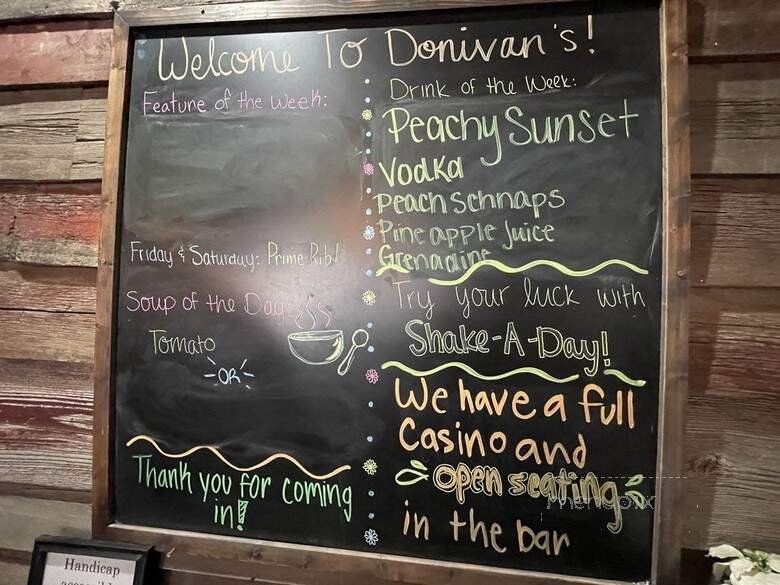 Welcome To Donivan's!
Feature of the Week:
Friday & Saturday: Prime Rib!
Soup of the Day:
Tomato
-OR-
Thank you for coming
in!
Drink of the Week:
Peachy Sunset
Vodka
Peach Schnaps
Pineapple Juice
Grenadine
Try your luck with
Shake-A-Day!
We have a full
Casino and
open seating
in the bar
menupix
Handicap